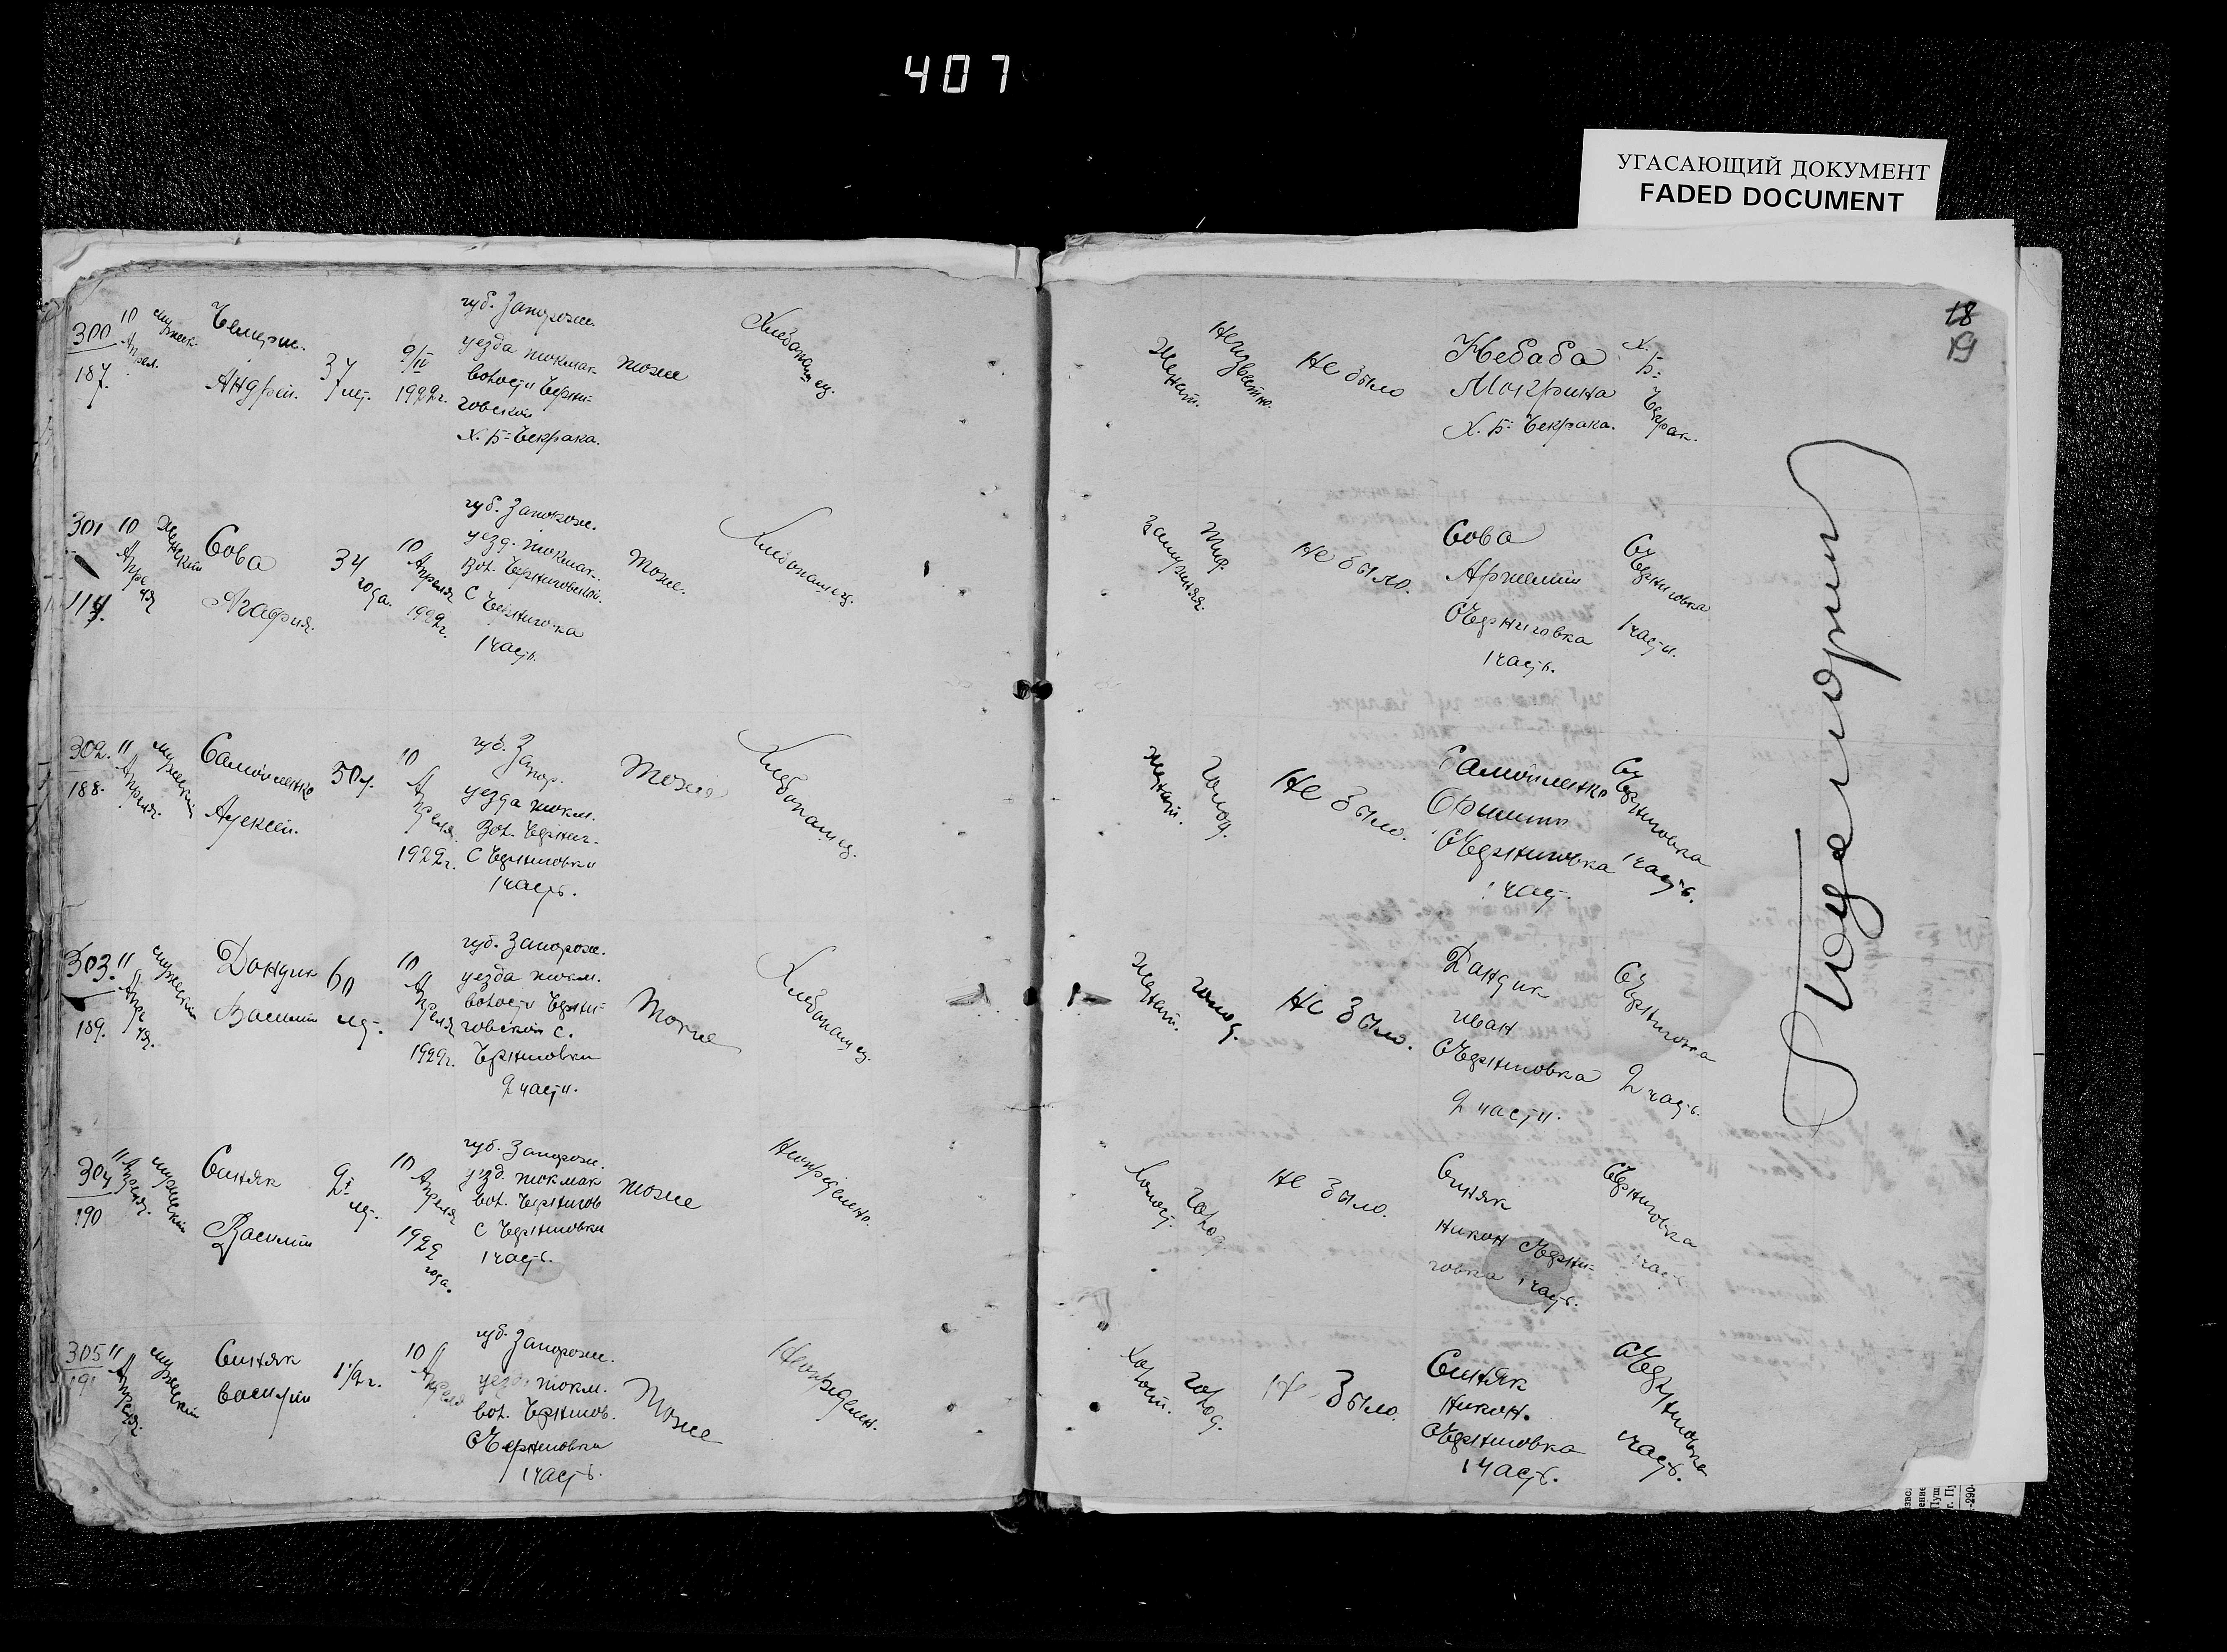 407
УГАСАЮЩИЙ ДОКУМЕНТ
FADED DOCUMENT
18
19
300
187.
10
Апрел.
мужеск.
Андрей.
37
лет.
9/IV
1922г.
губ. Запорож.
уезда токмак
волости Черни-
говской
х. Б-Чекрака.
тоже
Хлебопашец.
Женат.
Неизвестно.
Не было
Небаба
Мокрина
Х. Б- Чекрака.
х.
Б-
301
114.
10
Апре
ля
Женский
Сова
Агафия.
34
года.
10
Апреля
1922г.
губ. Запорож.
уезд. токмак.
Вол. Черниговской.
С Черниговка
1 часть.
Тоже.
Хлебопашец.
Замужняя.
Тиф.
Не было.
Сова
С Черниговка
1 часть.
С Черниговка
1 части.
302.
188.
11
Апреля.
мужеский
Самойленко
Алексей.
50 л.
10
Апреля
1922г.
губ. Запор.
уезда токм.
Вол. Черниг.
С Черниговки
1 часть.
Тоже
Хлебопашец.
женат.
голод.
Не было.
Самойленко
С Черниговка
1 част.
С Черниговка
1 часть.
303.
189.
11
Апре
ля.
мужеский
Дондик
Василий
60
лет.
10
Апреля
1922г.
губ. Запорож.
уезда токм.
волости Черни-
говской с.
Черниговки
2 части.
Тоже
Хлебопашец.
Женат.
голод.
Не было.
Дандик
иван
С Черниговка
2 части.
С Черниговка
2 часть.
304
190
11
Апреля.
мужеский
Синяк
Василий
лет.
10
Апреля
1922
года.
губ. Запорож.
уезд. токмак
вол. Чернигов
С Черниговки
1 часть.
тоже
Неопределено.
Холост.
голод.
Не было.
Синяк
Никон С Черни-
говка 1 часть.
С Черниговка
1 част
305
191
11
Апреля.
мужеский
Синяк
1 1/2 г.
10
Апреля
губ. Запорож.
уезда токм.
вол. Чернигов.
С Черниговки
1 часть.
Тоже
Неопределен.
Холост.
голод.
Не было.
Синяк
Никон.
С Черниговка
1 часть.
С Черниговка
1 часть.